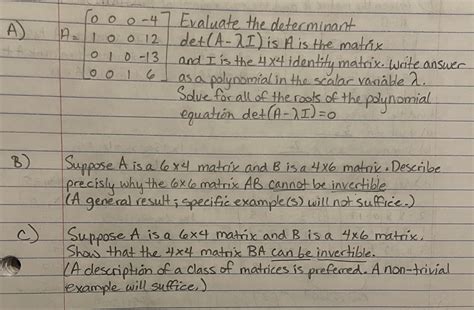 A)
A= [0 0 0 -4
1 0 0 12
0 1 0 -13
0 0 1 6]
Evaluate the determinant
det(A-λI) is A is the matrix
and I is the 4x4 identity matrix. Write answer
as a polynomial in the scalar variable λ.
Solve for all of the roots of the polynomial
equation det(A-λI)=0
B) Suppose A is a 6x4 matrix and B is a 4x6 matrix. Describe
precisly why the 6x6 matrix AB cannot be invertible
(A general result; specific example(s) will not suffice.)
C) Suppose A is a 6x4 matrix and B is a 4x6 matrix.
Show that the 4x4 matrix BA can be invertible.
(A description of a class of matrices is preferred. A non-trivial
example will suffice.)